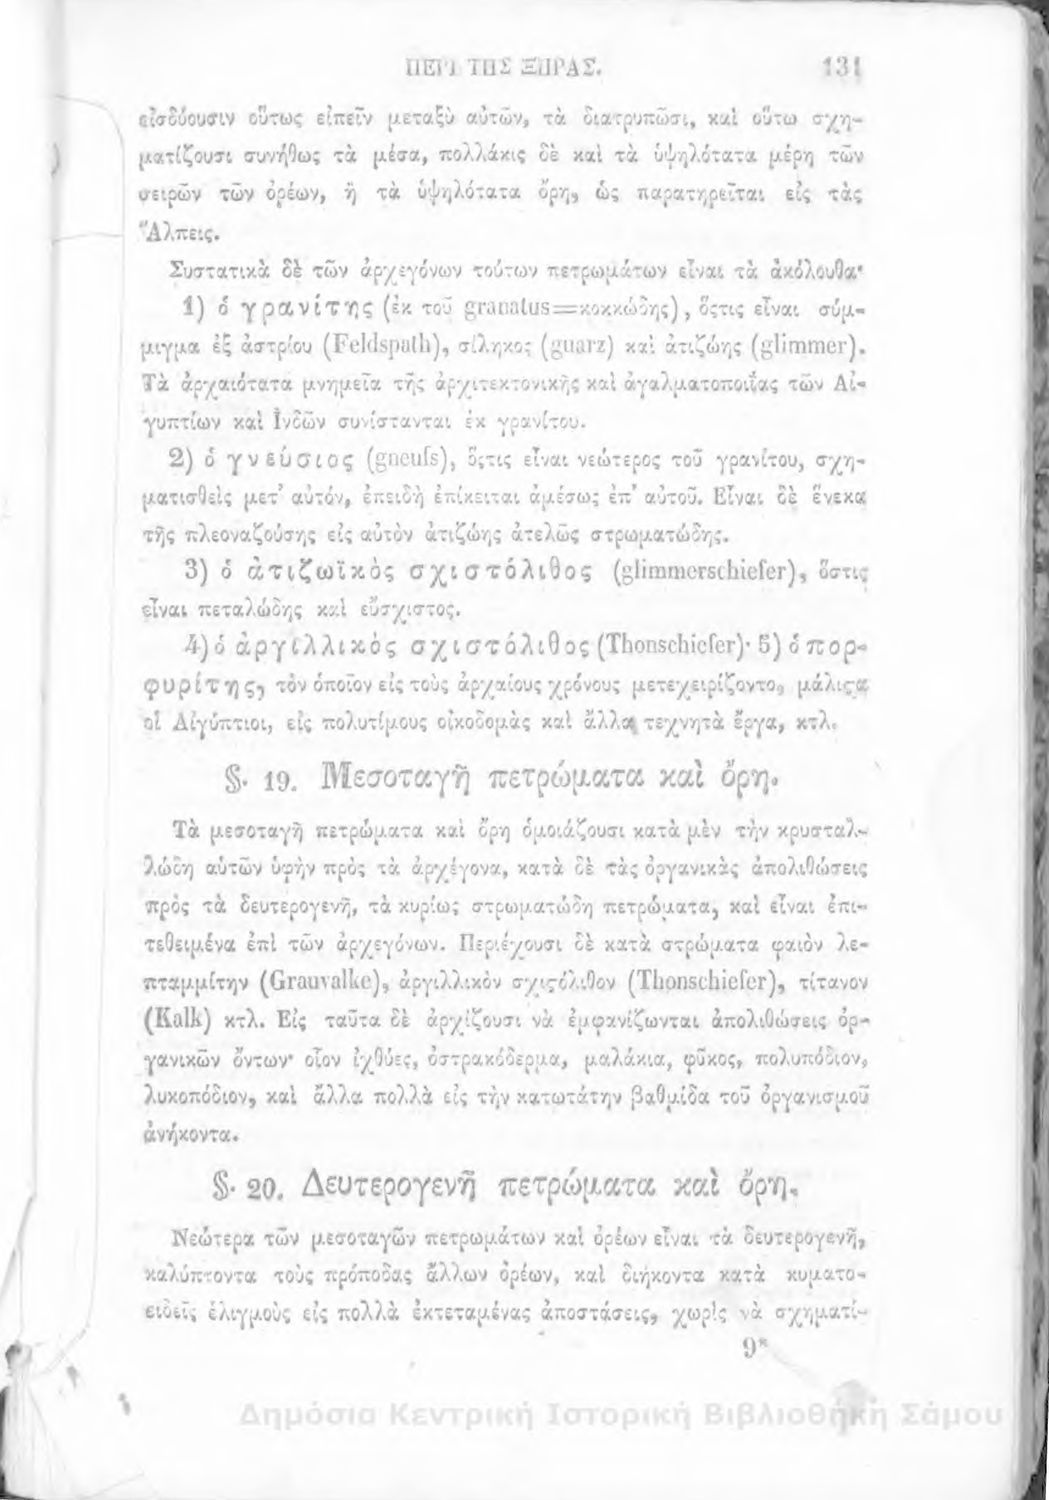 ΠΕΡΙ ΤΗΣ ΞΗΡΑΣ. 131
εἰσδύουσιν οὕτως εἰπεῖν μεταξὺ αὐτῶν, τὰ διατρυπῶσι, καὶ οὕτω σχη-
ματίζουσι συνήθως τὰ μέσα, πολλάκις δὲ καὶ τὰ ὑψηλότατα μέρη τῶν
σειρῶν τῶν ὀρέων, ἢ τὰ ὑψηλότατα ὄρη, ὡς παρατηρεῖται εἰς τὰς
Ἄλπεις.
Συστατικὰ δὲ τῶν ἀρχεγόνων τούτων πετρωμάτων εἶναι τὰ ἀκόλουθα·
1) ὁ γρανίτης (ἐκ τοῦ granatus=κοκκώδης), ὅςτις εἶναι σύμ-
μιγμα ἐξ ἀστρίου (Feldspath), σίληκος (guarz) καὶ ἀτιζώης (glimmer).
Τὰ ἀρχαιότατα μνημεῖα τῆς ἀρχιτεκτονικῆς καὶ ἀγαλματοποιΐας τῶν Αἰ-
γυπτίων καὶ Ἰνδῶν συνίστανται ἐκ γρανίτου.
2) ὁ γνεύσιος (gneuſs), ὅςτις εἶναι νεώτερος τοῦ γρανίτου, σχη-
ματισθεὶς μετ' αὐτόν, ἐπειδὴ ἐπίκειται ἀμέσως ἐπ' αὐτοῦ. Εἶναι δὲ ἕνεκα
τῆς πλεοναζούσης εἰς αὐτὸν ἀτιζώης ἀτελῶς στρωματώδης.
3) ὁ ἀτιζωϊκὸς σχιστόλιθος (glimmerschiefer), ὅστις
εἶναι πεταλώδης καὶ εὔσχιστος.
4) ὁ ἀργιλλικὸς σχιστόλιθος (Thonschiefer)· 5) ὁ πορ-
φυρίτης, τὸν ὁποῖον εἰς τοὺς ἀρχαίους χρόνους μετεχειρίζοντο, μάλιϛα
οἱ Αἰγύπτιοι, εἰς πολυτίμους οἰκοδομὰς καὶ ἄλλα τεχνητὰ ἔργα, κτλ.
§. 19. Μεσοταγῆ πετρώματα καὶ ὄρη.
Τὰ μεσοταγῆ πετρώματα καὶ ὄρη ὁμοιάζουσι κατὰ μὲν τὴν κρυσταλ-
λώδη αὐτῶν ὑφὴν πρὸς τὰ ἀρχέγονα, κατὰ δὲ τὰς ὀργανικὰς ἀπολιθώσεις
πρὸς τὰ δευτερογενῆ, τὰ κυρίως στρωματώδη πετρώματα, καὶ εἶναι ἐπι-
τεθειμένα ἐπὶ τῶν ἀρχεγόνων. Περιέχουσι δὲ κατὰ στρώματα φαιὸν λε-
πταμμίτην (Grauvalke), ἀργιλλικὸν σχιϛόλιθον (Thonschiefer), τίτανον
(Kalk) κτλ. Εἰς ταῦτα δὲ ἀρχίζουσι νὰ ἐμφανίζωνται ἀπολιθώσεις ὀρ-
γανικῶν ὄντων· οἷον ἰχθύες, ὀστρακόδερμα, μαλάκια, φῦκος, πολυπόδιον,
λυκοπόδιον, καὶ ἄλλα πολλὰ εἰς τὴν κατωτάτην βαθμίδα τοῦ ὀργανισμοῦ
ἀνήκοντα.
§. 20. Δευτερογενῆ πετρώματα καὶ ὄρη.
Νεώτερα τῶν μεσοταγῶν πετρωμάτων καὶ ὀρέων εἶναι τὰ δευτερογενῆ,
καλύπτοντα τοὺς πρόποδας ἄλλων ὀρέων, καὶ διήκοντα κατὰ κυματο-
ειδεῖς ἑλιγμοὺς εἰς πολλὰ ἐκτεταμένας ἀποστάσεις, χωρὶς νὰ σχηματί-
9*
Δημόσια Κεντρική Ιστορική Βιβλιοθήκη Σάμου